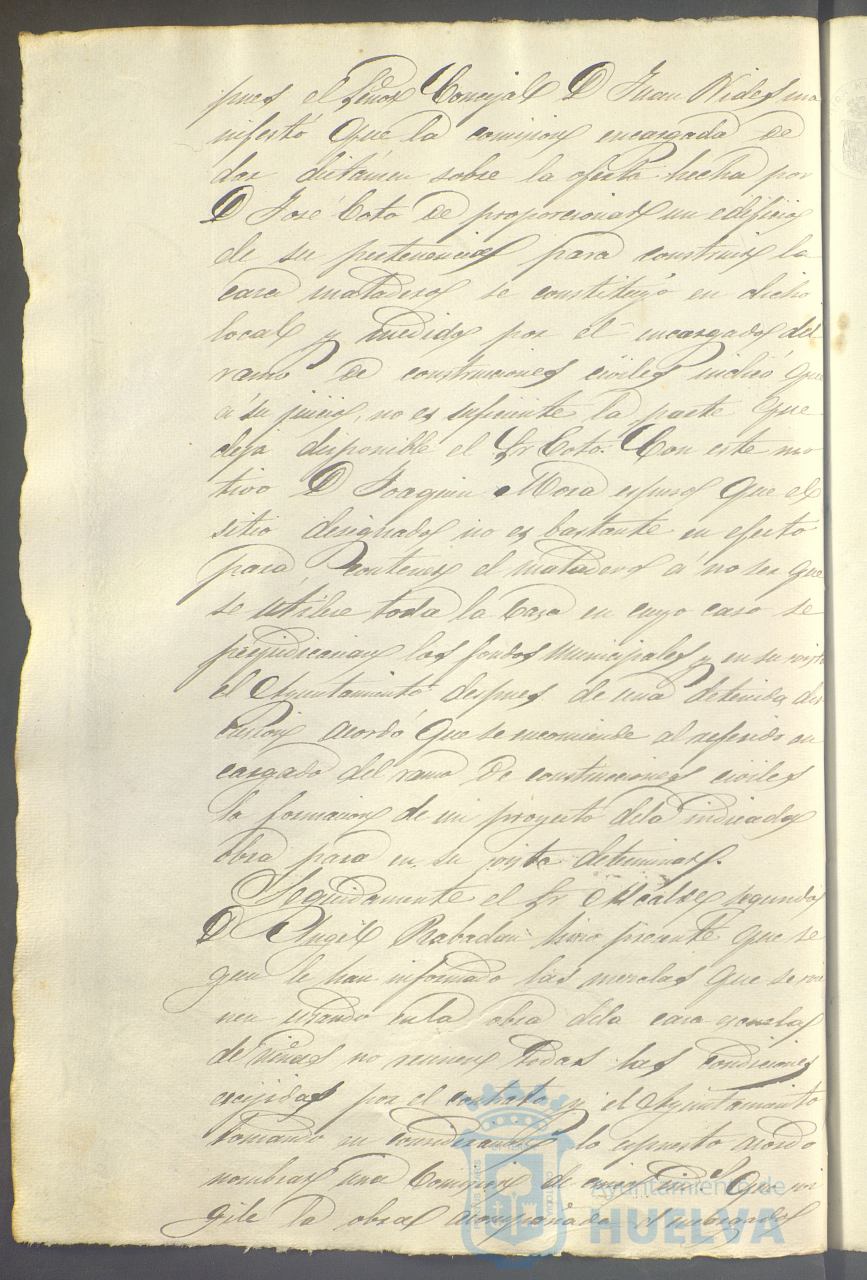 pues el Señor Concejal D Juan Vides ma
nifestó que la comision encargada de
dar dictámen sobre la oferta hecha por
D José Coto de proporcionar un edificio
de su pertenencia para construir la
casa matadero se constituyó en dicho
local y medido por el encargado del
ramo de construcciones civiles indicó que
á su juicio, no es suficiente la parte que
deja disponible el Sr Coto. Con este mo
tivo D Joaquin Mora espuso que el
sitio designado no es bastante en efecto
para contener el matadero á no ser que
se utilice toda la Casa en cuyo caso se
perjudicarian los fondos municipales y en su vista
el Ayuntamiento despues de una detenida dis
cusion acordó que se encomiende al referido en
cargado del ramo de construcciones civiles
la formacion de un proyecto dela indicada
obra para en su vista determinar.
Seguidamente el Sr Alcalde segundo
D Angel Rabadan hizo presente que se
gun le han informado las mezclas que se vi
nen usando enla obra dela casa escuela
de niñas no reunen todas las condiciones
exijidas por el contrato y el Ayuntamiento
tomando en consideracion lo espuesto acordó
nombrar una Comision de que vi
gile la obra acompañada encargado
Ayuntamiento de
HUELVA